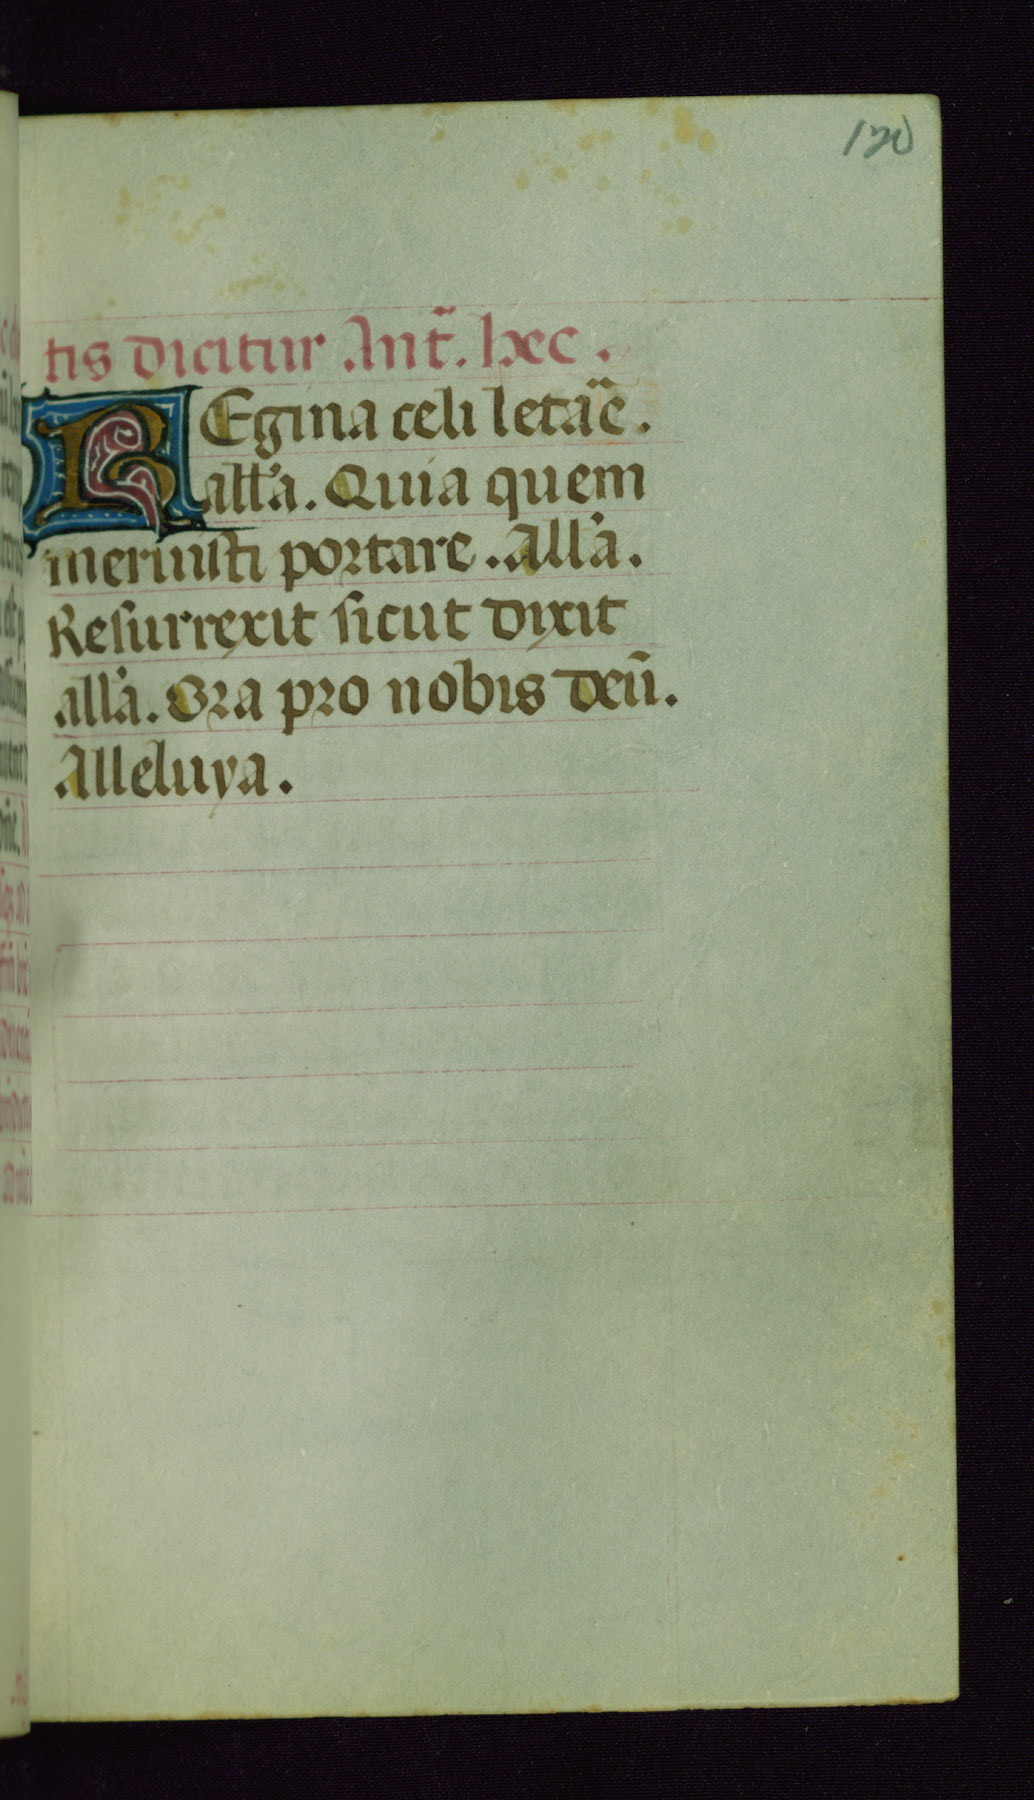 120
tis dicitur Ant̃. hec.
REgina celi letaẽ.
all'a. Quia quem
meruisti portare. All'a.
Resurrexit sicut dixit
all'a. Ora pro nobis deũ.
Alleluya.